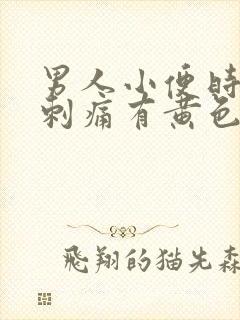 男人小便时
刺痛有黄色
飛翔的猫先森